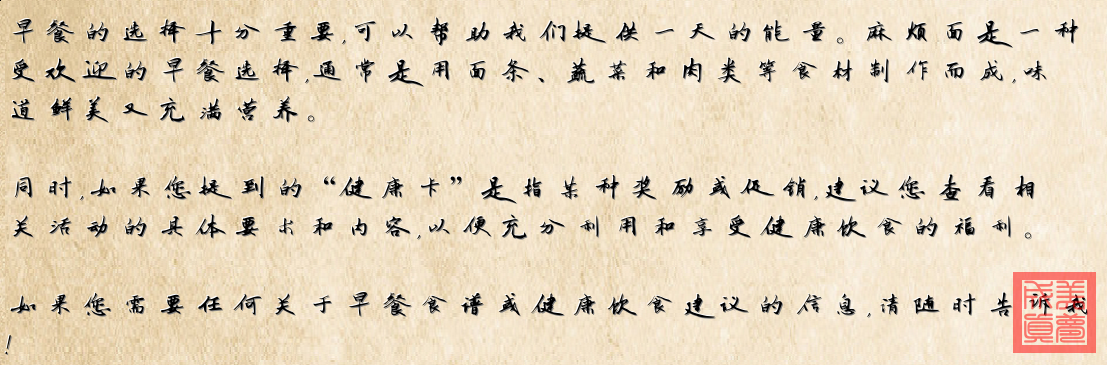 早餐的选择十分重要,可以帮助我们提供一天的能量。麻烦面是一种
受欢迎的早餐选择,通常是用面条、蔬菜和肉类等食材制作而成,味
道鲜美又充满营养。
同时,如果您提到的“健康卡”是指某种奖励或促销,建议您查看相
关活动的具体要求和内容,以便充分利用和享受健康饮食的福利。
如果您需要任何关于早餐食谱或健康饮食建议的信息,请随时告诉我
!
美梦成真